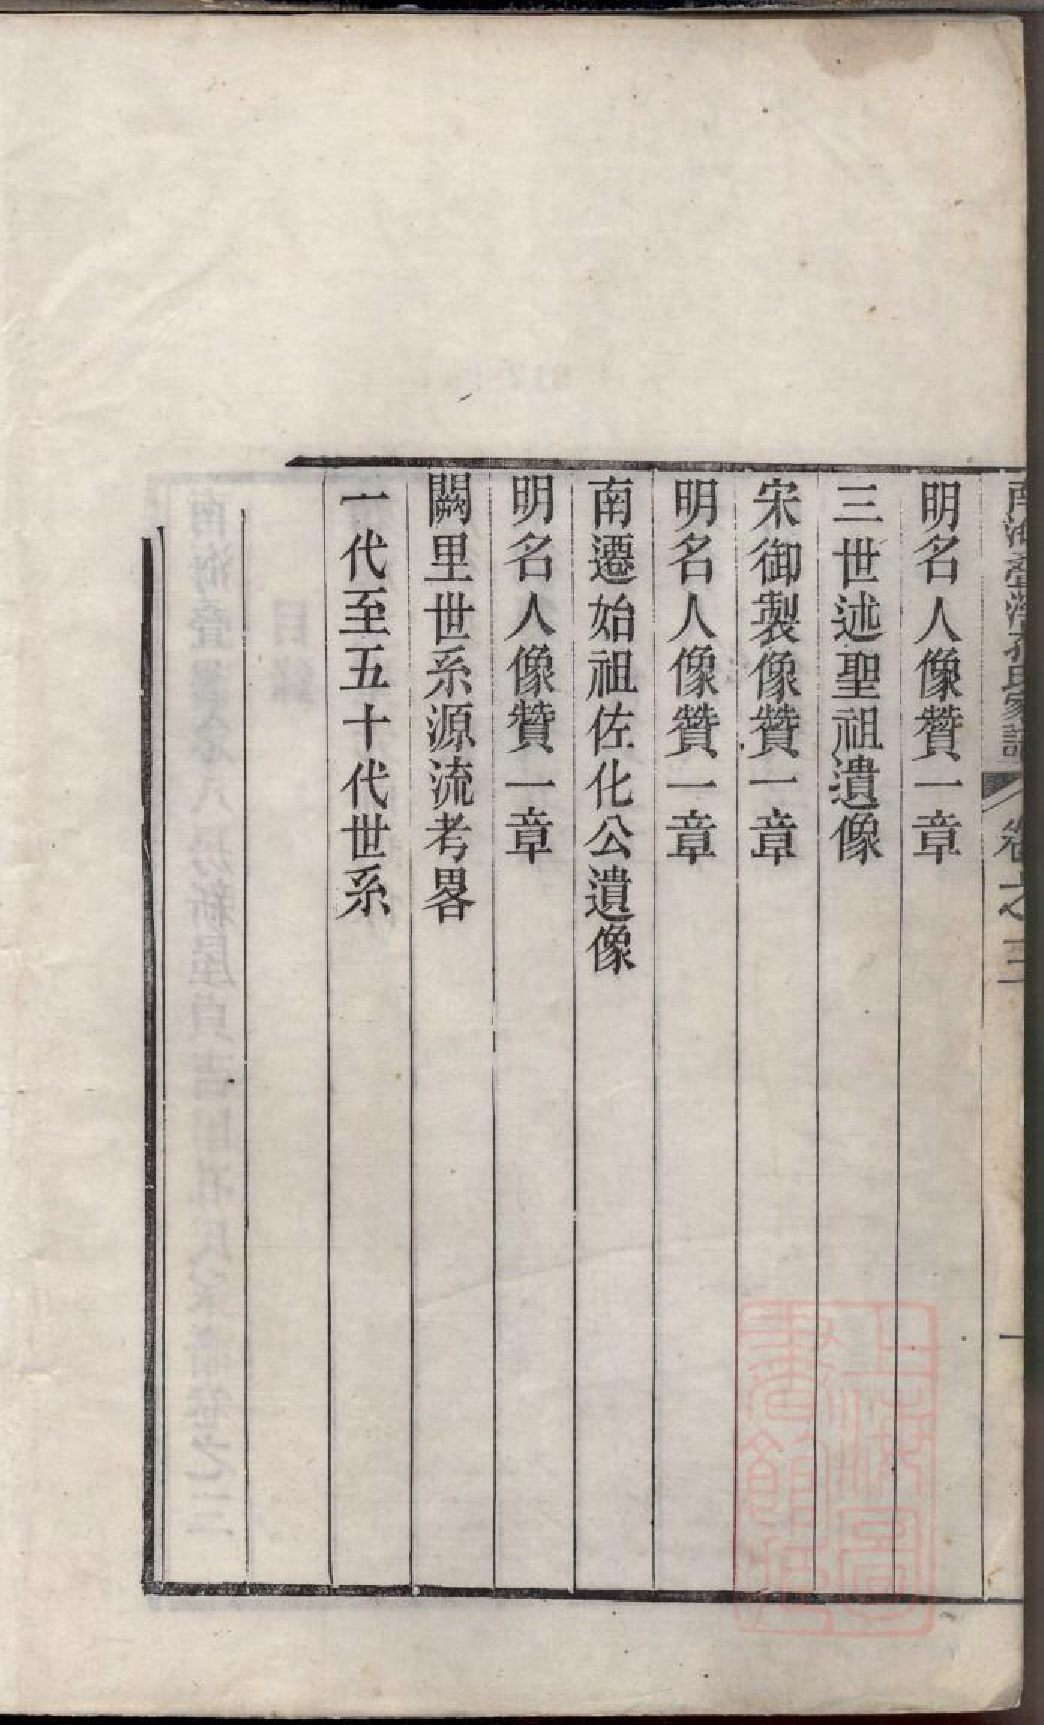 南海疊滘孔氏家譜 卷之三 一
明名人像贊一章
三世述聖祖遺像
宋御製像贊一章
明名人像贊一章
南遷始祖佐化公遺像
明名人像贊一章
闕里世系源流考畧
一代至五十代世系
上海圖
書館藏